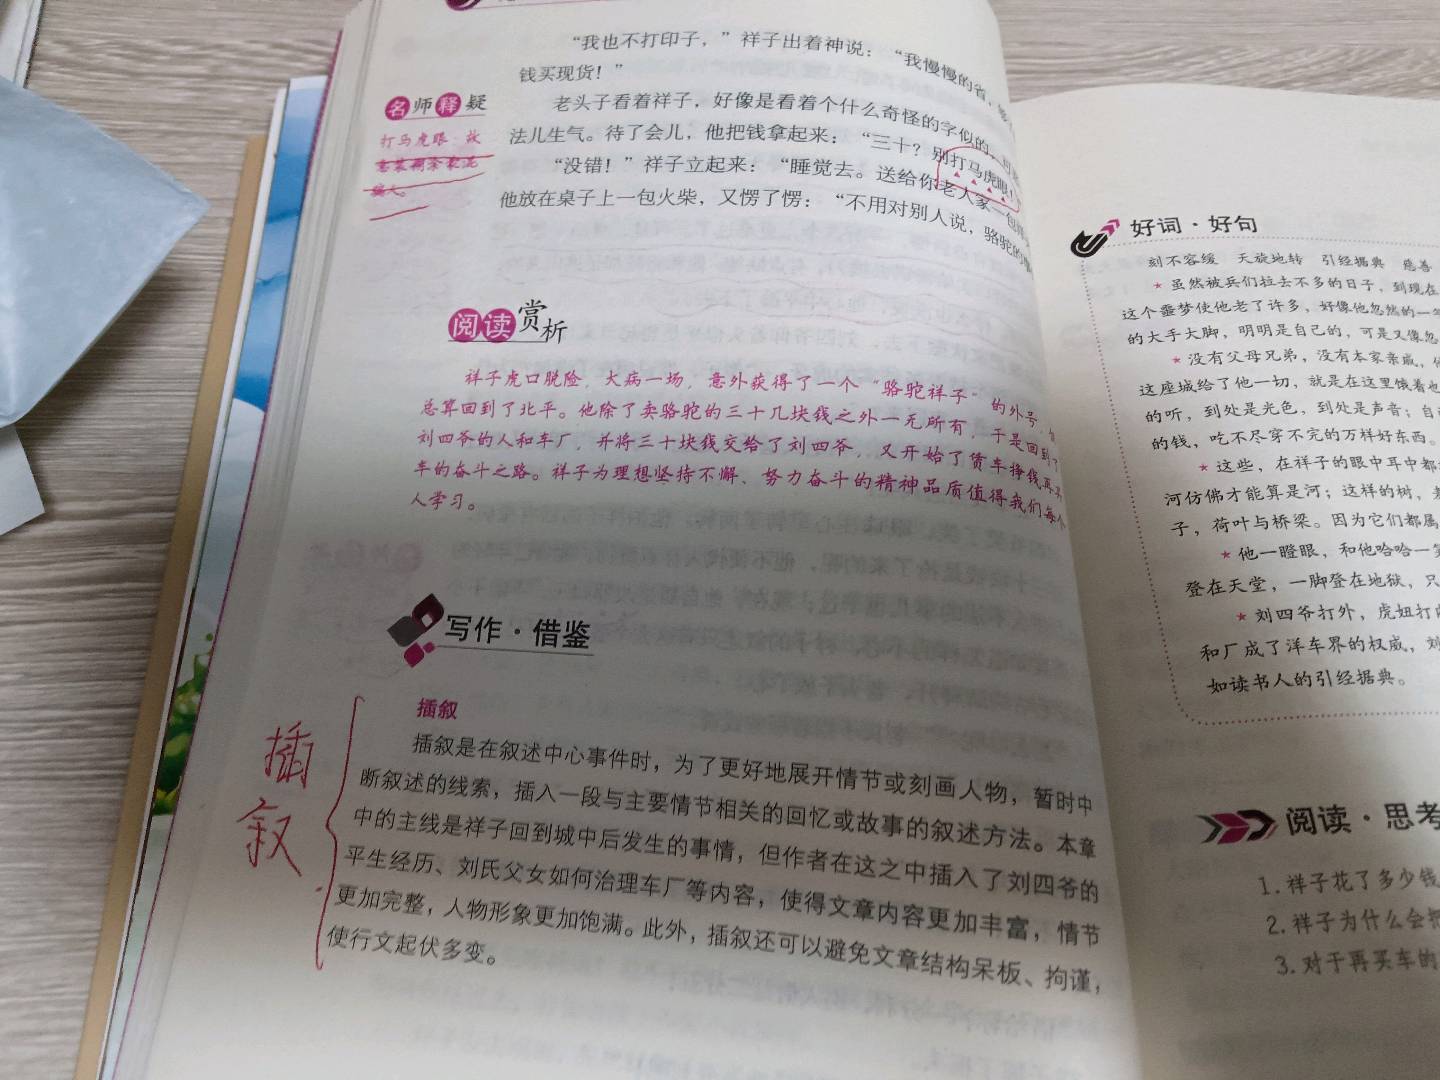 “我也不打印子，”祥子出着神说：“我慢慢的省，
钱买现货！”
老头子看着祥子，好像是看着个什么奇怪的字似的，
法儿生气。待了会儿，他把钱拿起来：“三十？别打马虎眼！”
“没错！”祥子立起来：“睡觉去。送给你老人家一包
他放在桌子上一包火柴，又愣了愣：“不用对别人说，骆驼的
名师释疑
打马虎眼：故
阅读赏析
祥子虎口脱险，大病一场，意外获得了一个“骆驼祥子”的外号，
总算回到了北平。他除了卖骆驼的三十几块钱之外一无所有，于是回到了
刘四爷的人和车厂，并将三十块钱交给了刘四爷，又开始了赁车挣钱再买
车的奋斗之路。祥子为理想坚持不懈、努力奋斗的精神品质值得我们每个
人学习。
写作·借鉴
插叙
插叙是在叙述中心事件时，为了更好地展开情节或刻画人物，暂时中
断叙述的线索，插入一段与主要情节相关的回忆或故事的叙述方法。本章
中的主线是祥子回到城中后发生的事情，但作者在这之中插入了刘四爷的
平生经历、刘氏父女如何治理车厂等内容，使得文章内容更加丰富，情节
更加完整，人物形象更加饱满。此外，插叙还可以避免文章结构呆板、拘谨，
使行文起伏多变。
插
叙
好词·好句
刻不容缓 天旋地转 引经据典 慈善
★虽然被兵们拉去不多的日子，到现在
这个噩梦使他老了许多，好像他忽然的一年
的大手大脚，明明是自己的，可是又像忽
★没有父母兄弟，没有本家亲戚，
这座城给了他一切，就是在这里饿着也
的听，到处是光色，到处是声音；自
的钱，吃不尽穿不完的万样好东西。
★这些，在祥子的眼中耳中都
河仿佛才能算是河；这样的树，
子，荷叶与桥梁。因为它们都属
★他一瞪眼，和他哈哈一笑
登在天堂，一脚登在地狱，只
★刘四爷打外，虎妞打内
和厂成了洋车界的权威，刘
如读书人的引经据典。
阅读·思考
1.祥子花了多少钱
2.祥子为什么会把
3.对于再买车的